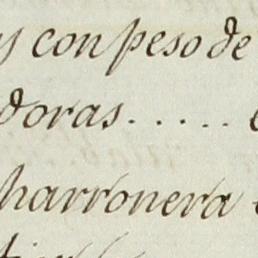 y con peso de
doras.....
harronera